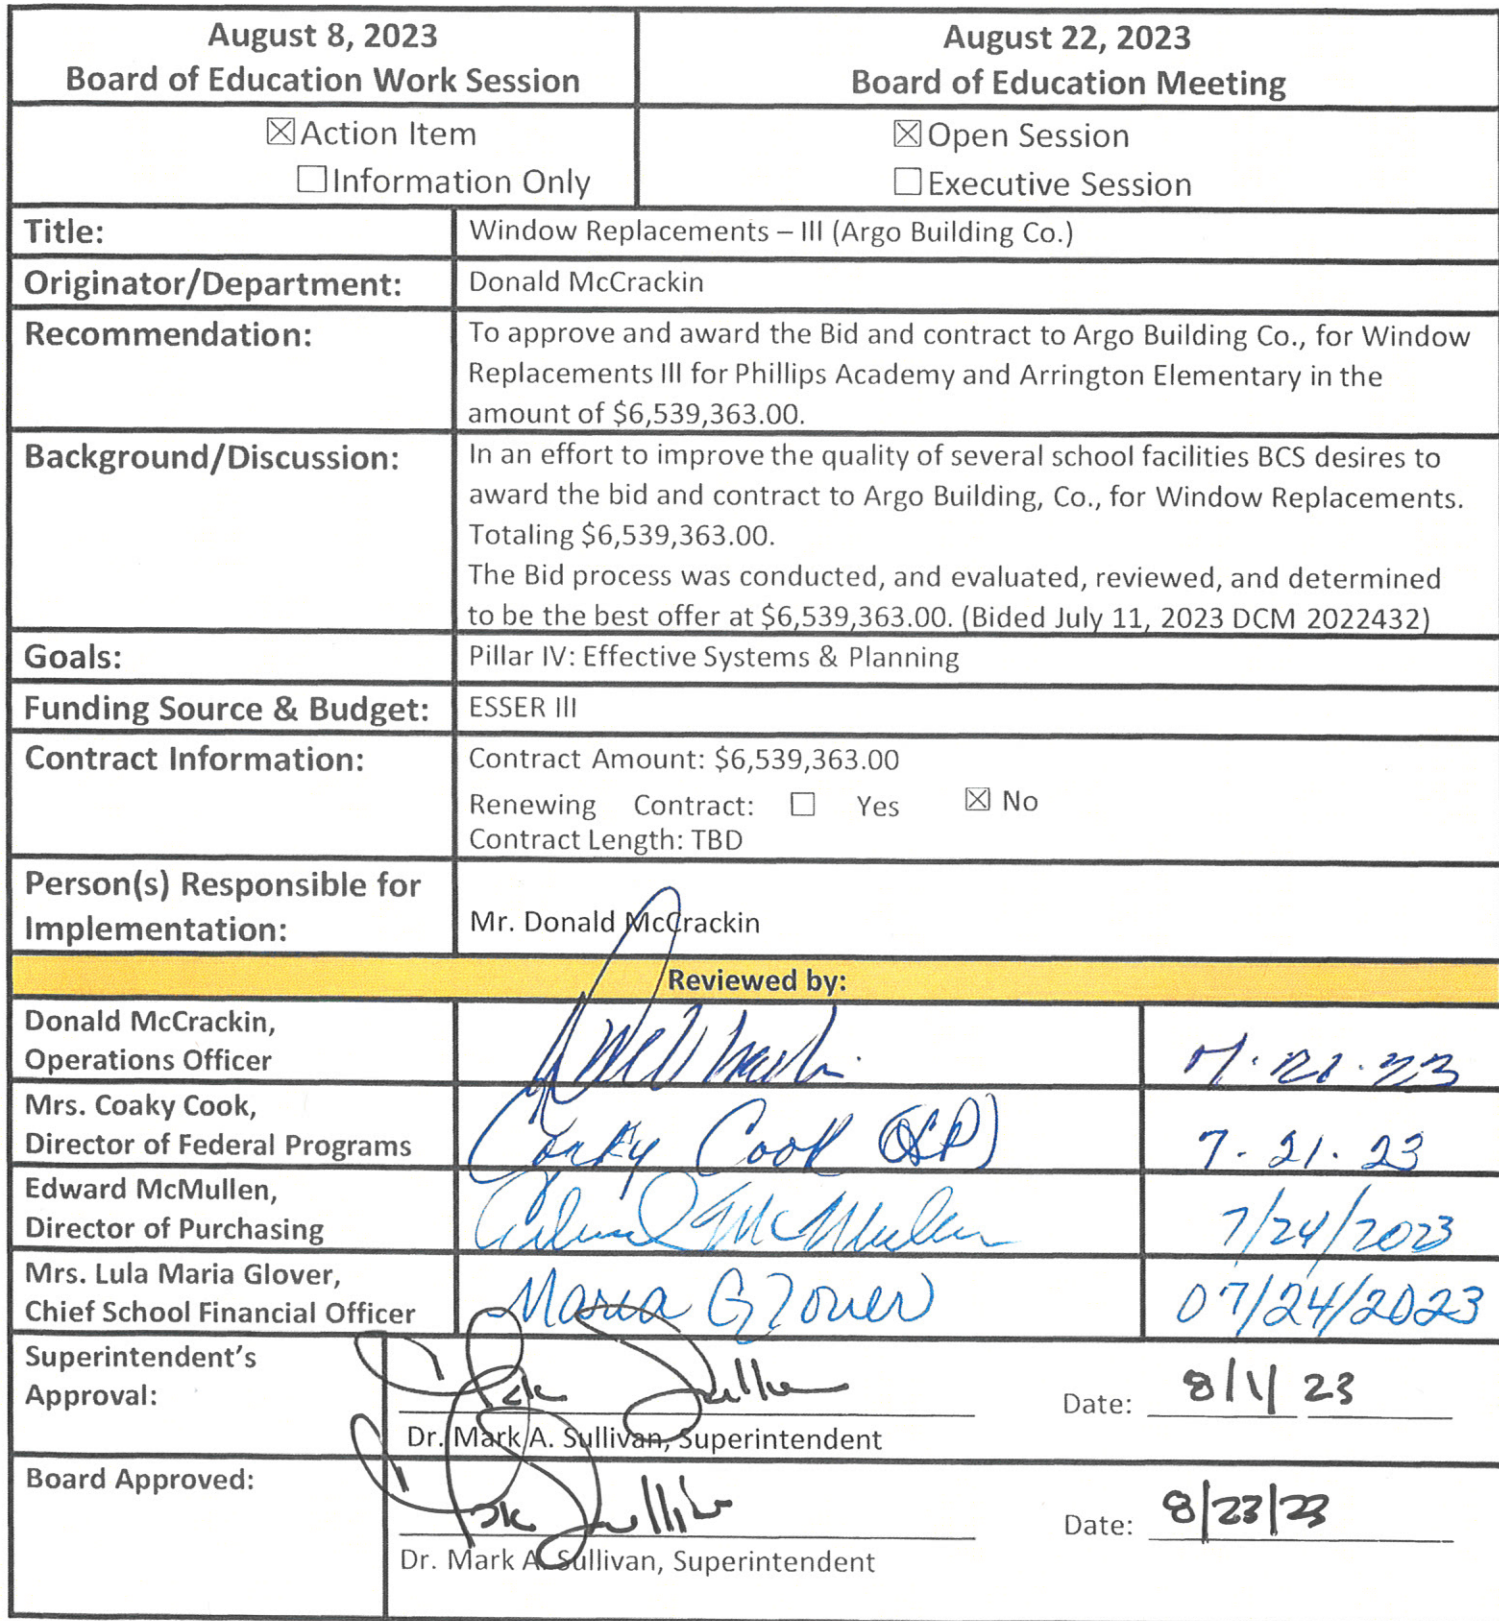 August 8, 2023
Board of Education Work Session
August 22, 2023
Board of Education Meeting
☒Action Item
☐Information Only
☒Open Session
☐Executive Session
Title:
Window Replacements – III (Argo Building Co.)
Originator/Department:
Donald McCrackin
Recommendation:
To approve and award the Bid and contract to Argo Building Co., for Window
Replacements III for Phillips Academy and Arrington Elementary in the
amount of $6,539,363.00.
Background/Discussion:
In an effort to improve the quality of several school facilities BCS desires to
award the bid and contract to Argo Building, Co., for Window Replacements.
Totaling $6,539,363.00.
The Bid process was conducted, and evaluated, reviewed, and determined
to be the best offer at $6,539,363.00. (Bided July 11, 2023 DCM 2022432)
Goals:
Pillar IV: Effective Systems & Planning
Funding Source & Budget:
ESSER III
Contract Information:
Contract Amount: $6,539,363.00
Renewing Contract: ☐ Yes ☒ No
Contract Length: TBD
Person(s) Responsible for
Implementation:
Mr. Donald McCrackin
Reviewed by:
Donald McCrackin,
Operations Officer
7.21.23
Mrs. Coaky Cook,
Director of Federal Programs
Coaky Cook
7.21.23
Edward McMullen,
Director of Purchasing
Edward McMullen
7/24/2023
Mrs. Lula Maria Glover,
Chief School Financial Officer
Maria Glover
07/24/2023
Superintendent's
Approval:
Mark Sullivan
Date: 8/1/23
Dr. Mark A. Sullivan, Superintendent
Board Approved:
Mark Sullivan
Date: 8/23/23
Dr. Mark A. Sullivan, Superintendent